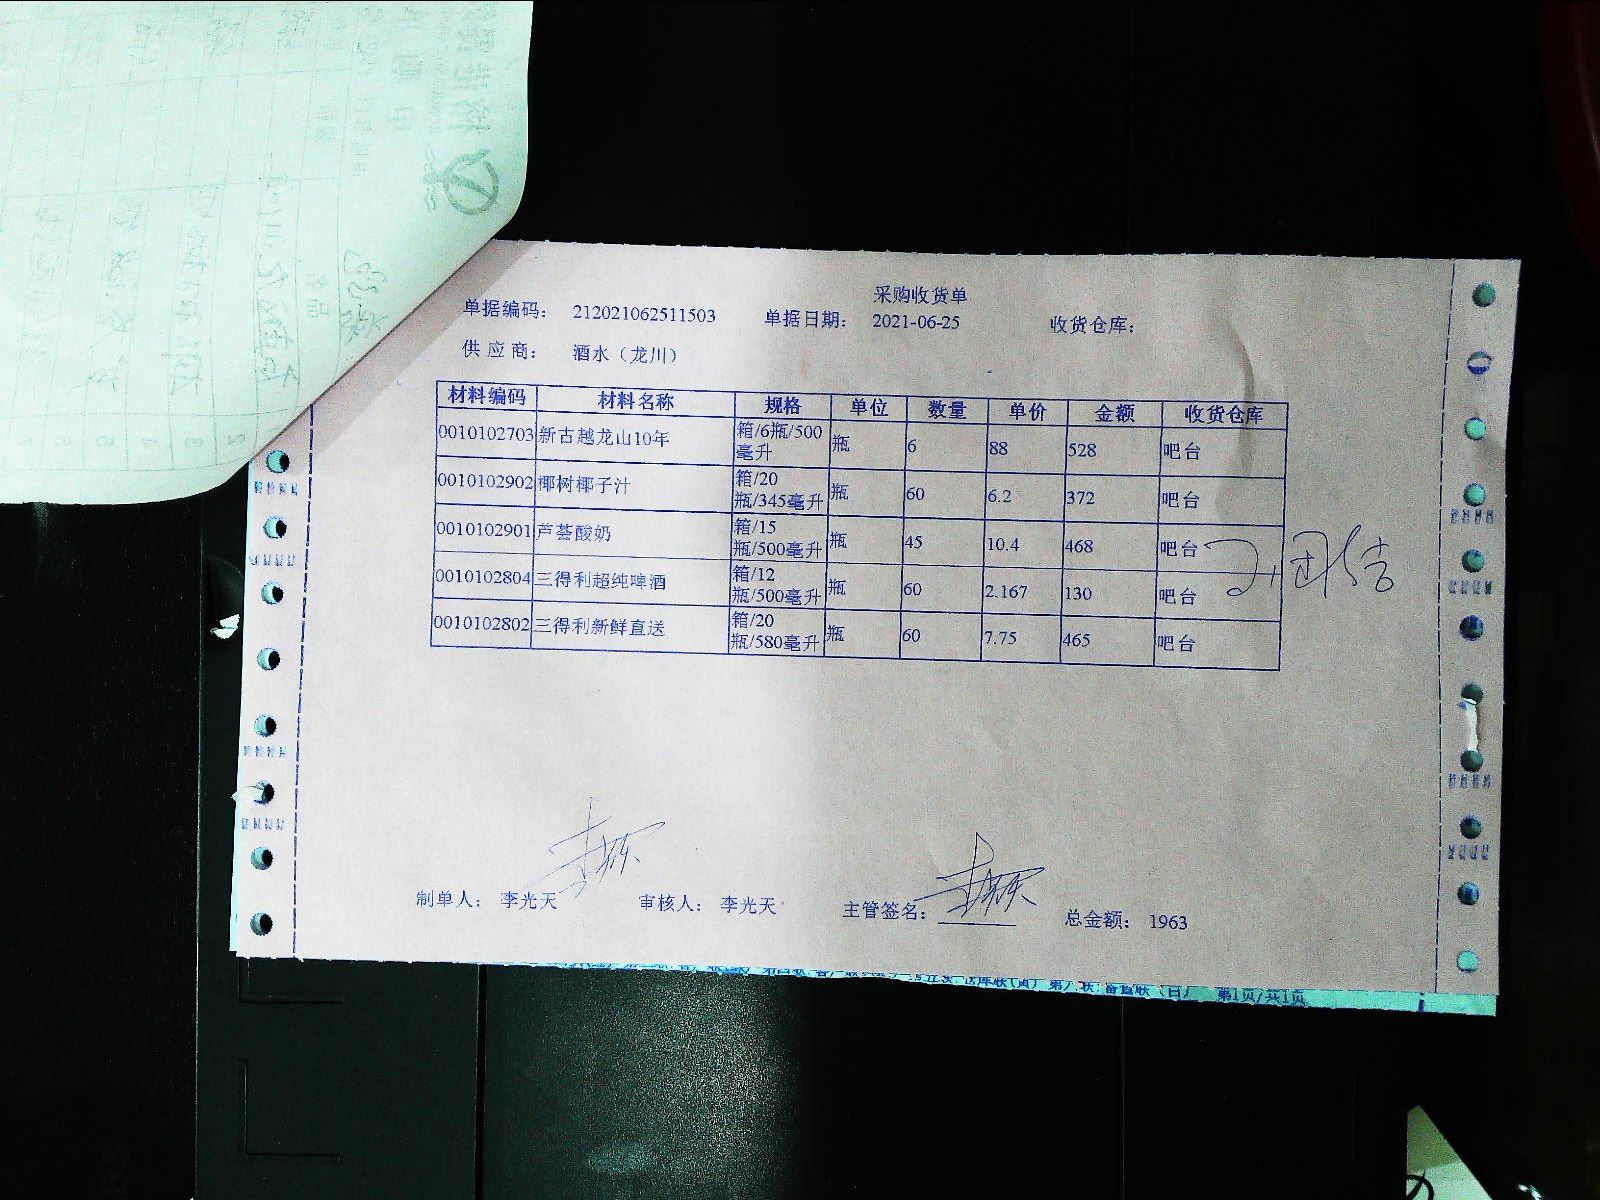 采购收货单
单据编码： 212021062511503 单据日期： 2021-06-25 收货仓库：
供 应 商： 酒水（龙川）
材料编码 材料名称 规格 单位 数量 单价 金额 收货仓库
0010102703 新古越龙山10年 箱/6瓶/500毫升 瓶 6 88 528 吧台
0010102902 椰树椰子汁 箱/20瓶/345毫升 瓶 60 6.2 372 吧台
0010102901 芦荟酸奶 箱/15瓶/500毫升 瓶 45 10.4 468 吧台
0010102804 三得利超纯啤酒 箱/12瓶/500毫升 瓶 60 2.167 130 吧台
0010102802 三得利新鲜直送 箱/20瓶/580毫升 瓶 60 7.75 465 吧台
制单人： 李光天 审核人： 李光天 主管签名： 总金额： 1963
第1页/共1页